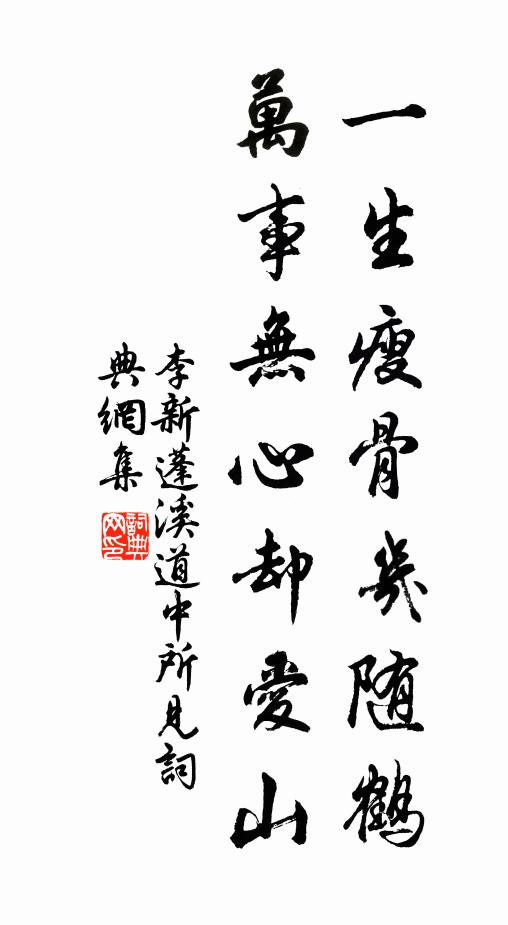 一生瘦骨幾随鶴
萬事無心却愛山
李新蓬溪道中所見詞
典網集
詞典
网印